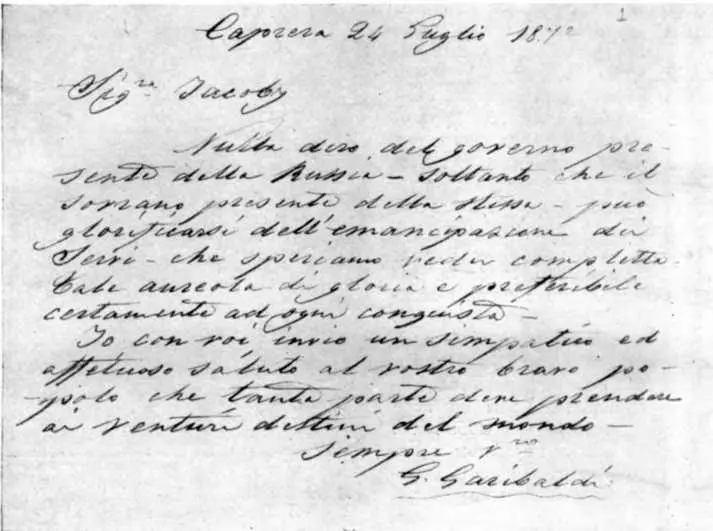 1
Caprera 24 Luglio 187
Sigra Jacoby
Nulla dirò del governo pre-
sente della Russia – soltanto che il
sovrano presente della stessa – può
glorificarsi dell'emancipazione dei
Servi – che speriamo veder completta.
Tale aureola di gloria è preferibile
certamente ad ogni conquista –
Io con voi invio un simpatico ed
affettuoso saluto al vostro bravo po-
-polo che tanta parte deve prendere
ai venturi destini del mondo –
Sempre vro
G. Garibaldi